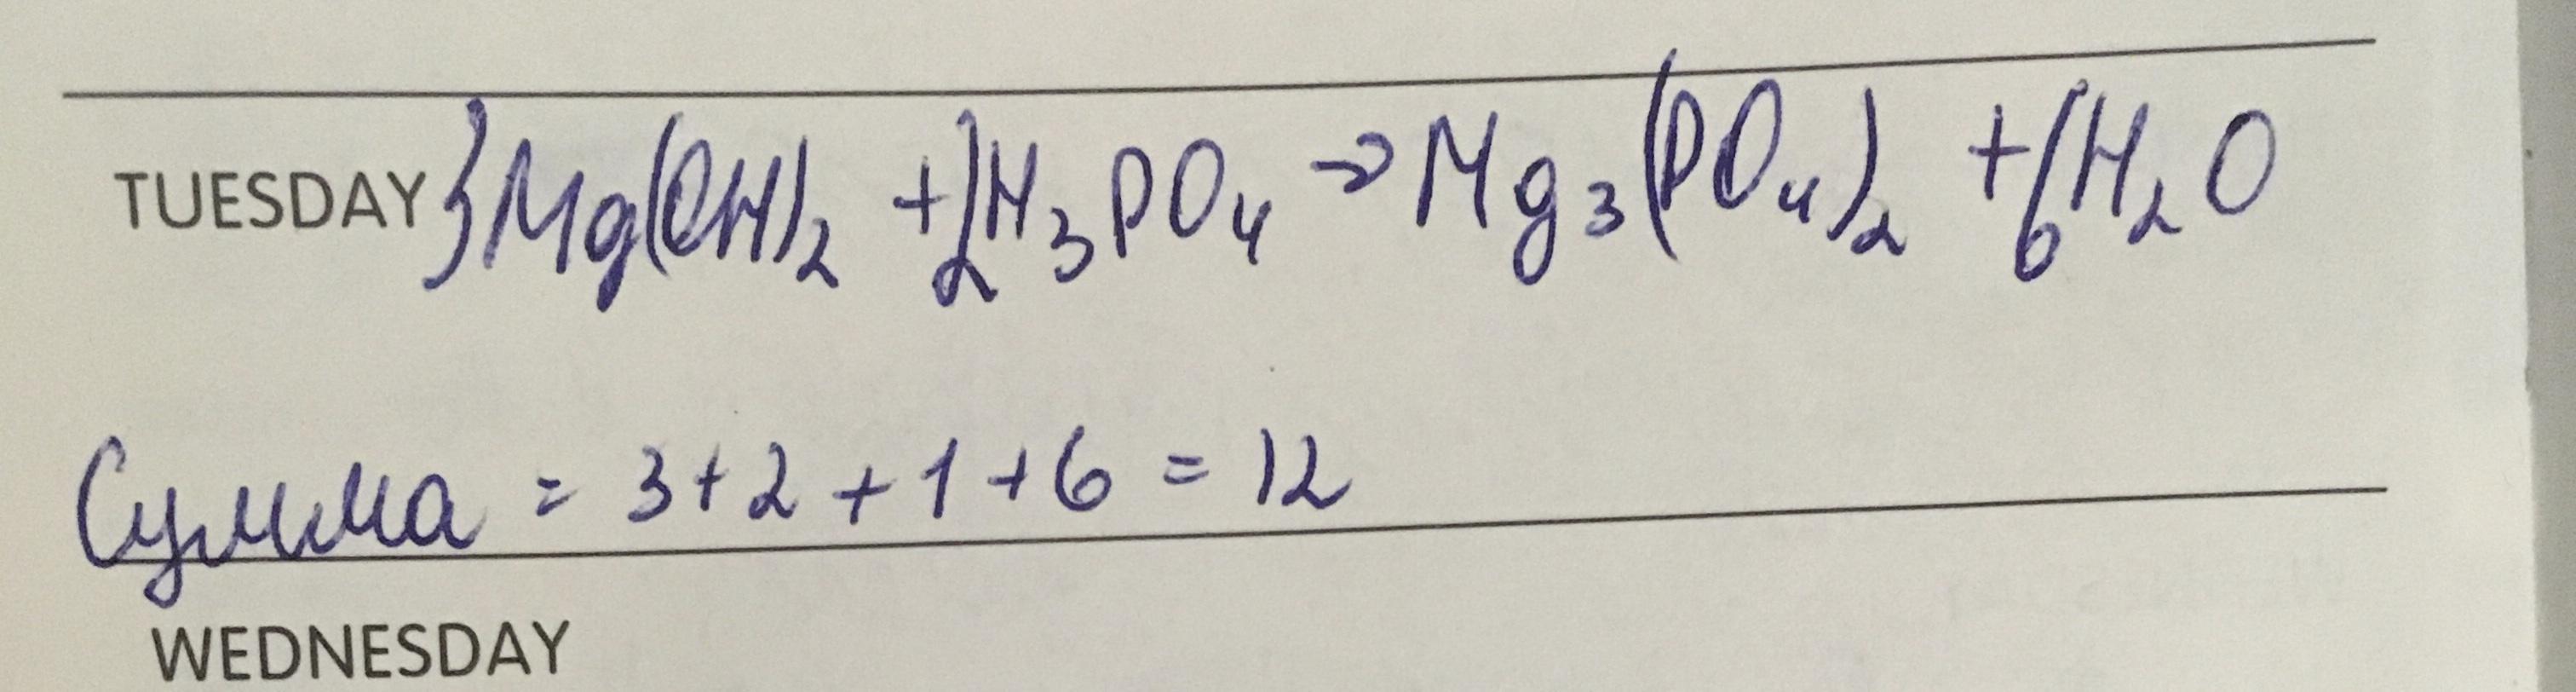 TUESDAY 3Mg(OH)₂ + 2H₃PO₄ → Mg₃(PO₄)₂ + 6H₂O
Сумма = 3+2+1+6 = 12
WEDNESDAY